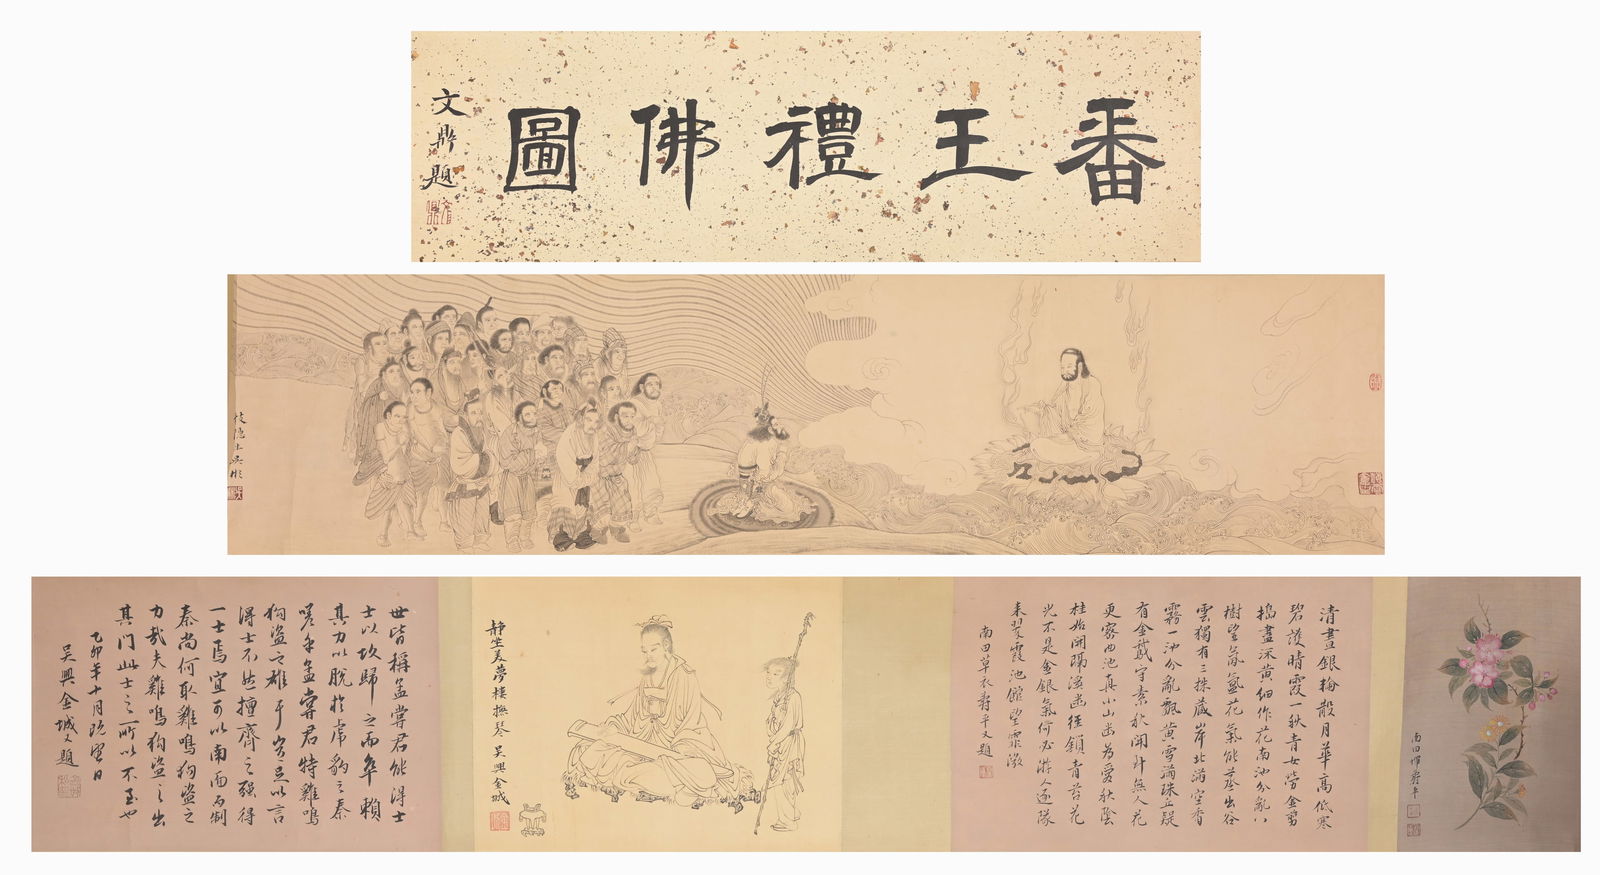 番王禮佛圖
文鼎題
枝隱士吳彬
清晝銀輪散月華高低寒
碧護晴霞一秋青女勞金剪
搗盡深黃細作花南沙分亂八
樹望氤氳花氣能蒸出谷
雲獨有三株藏岸北滿空香
霧一沙分亂飄黃雪滿珠丘疑
有金茎守素秋聞許無人花
更寂西池真小山幽為愛秋陰
桂始開隔溪幽徑鎖青苔花
光不是金銀氣何必游人逐隊
來翠霞池館望霏微
南田草衣壽平又題
南田惲壽平
靜坐美夢樓撫琴 吳興金城
世皆稱孟嘗君能得士
士以故歸之而卒賴
其力以脫於虎豹之秦
嗟乎孟嘗君特雞鳴
狗盜之雄耳豈足以言
得士不然擅齊之強得
一士焉宜可以南面而制
秦尚何取雞鳴狗盜之
力哉夫雞鳴狗盜之出
其門此士之所以不至也
乙卯年十月既望日
吳興金城又題